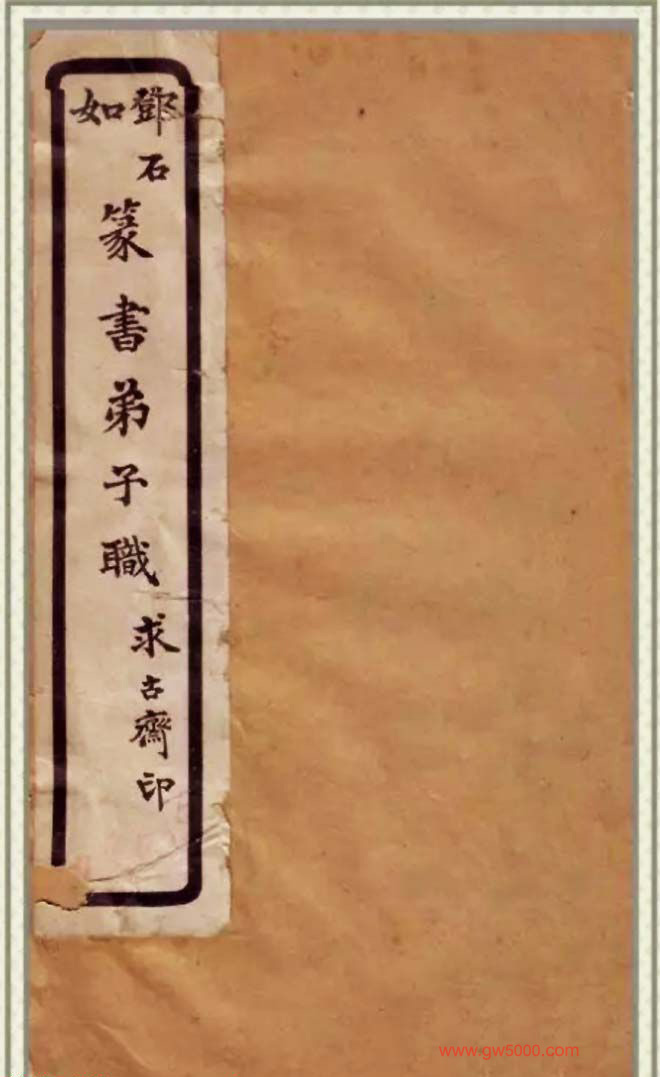 鄧石如
篆書弟子職
求古齋印
www.gw5000.com